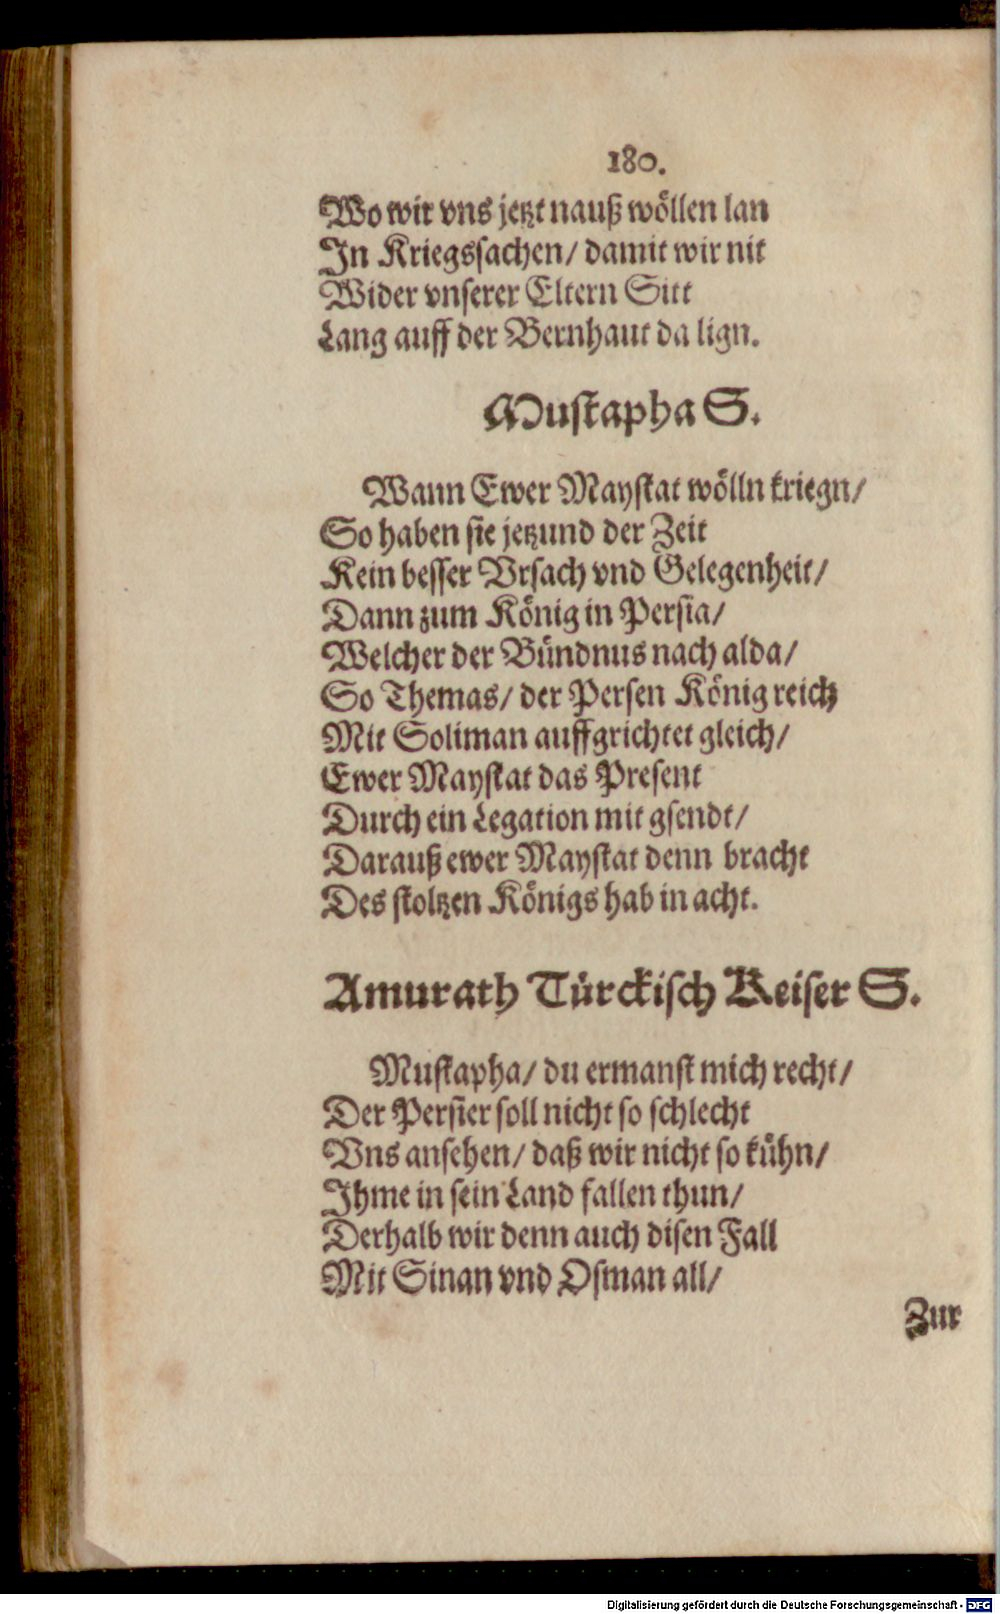 180.
Wo wir vns jetzt nauß wöllen lan
In Kriegssachen/ damit wir nit
Wider vnserer Eltern Sitt
Lang auff der Bernhaut da lign.
Mustapha S.
Wann Ewer Maystat wölln kriegn/
So haben sie jetzund der Zeit
Kein besser Vrsach vnd Gelegenheit/
Dann zum König in Persia/
Welcher der Bündnus nach alda/
So Themas/ der Persen König reich
Mit Soliman auffgrichtet gleich/
Ewer Maystat das Present
Durch ein Legation mit gsendt/
Darauß ewer Maystat denn bracht
Des stoltzen Königs hab in acht.
Amurath Türckisch Keiser S.
Mustapha/ du ermanst mich recht/
Der Persier soll nicht so schlecht
Vns ansehen/ daß wir nicht so kühn/
Ihme in sein Land fallen thun/
Derhalb wir denn auch disen Fall
Mit Sinan vnd Osman all/
Zur
Digitalisierung gefördert durch die Deutsche Forschungsgemeinschaft - DFG